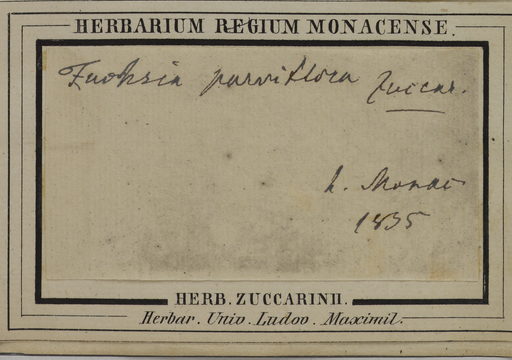 HERBARIUM REGIUM MONACENSE.
Fuchsia parviflora Zuccar.
h. Monac
1835
HERB. ZUCCARINII.
Herbar. Univ. Ludov. Maximil.